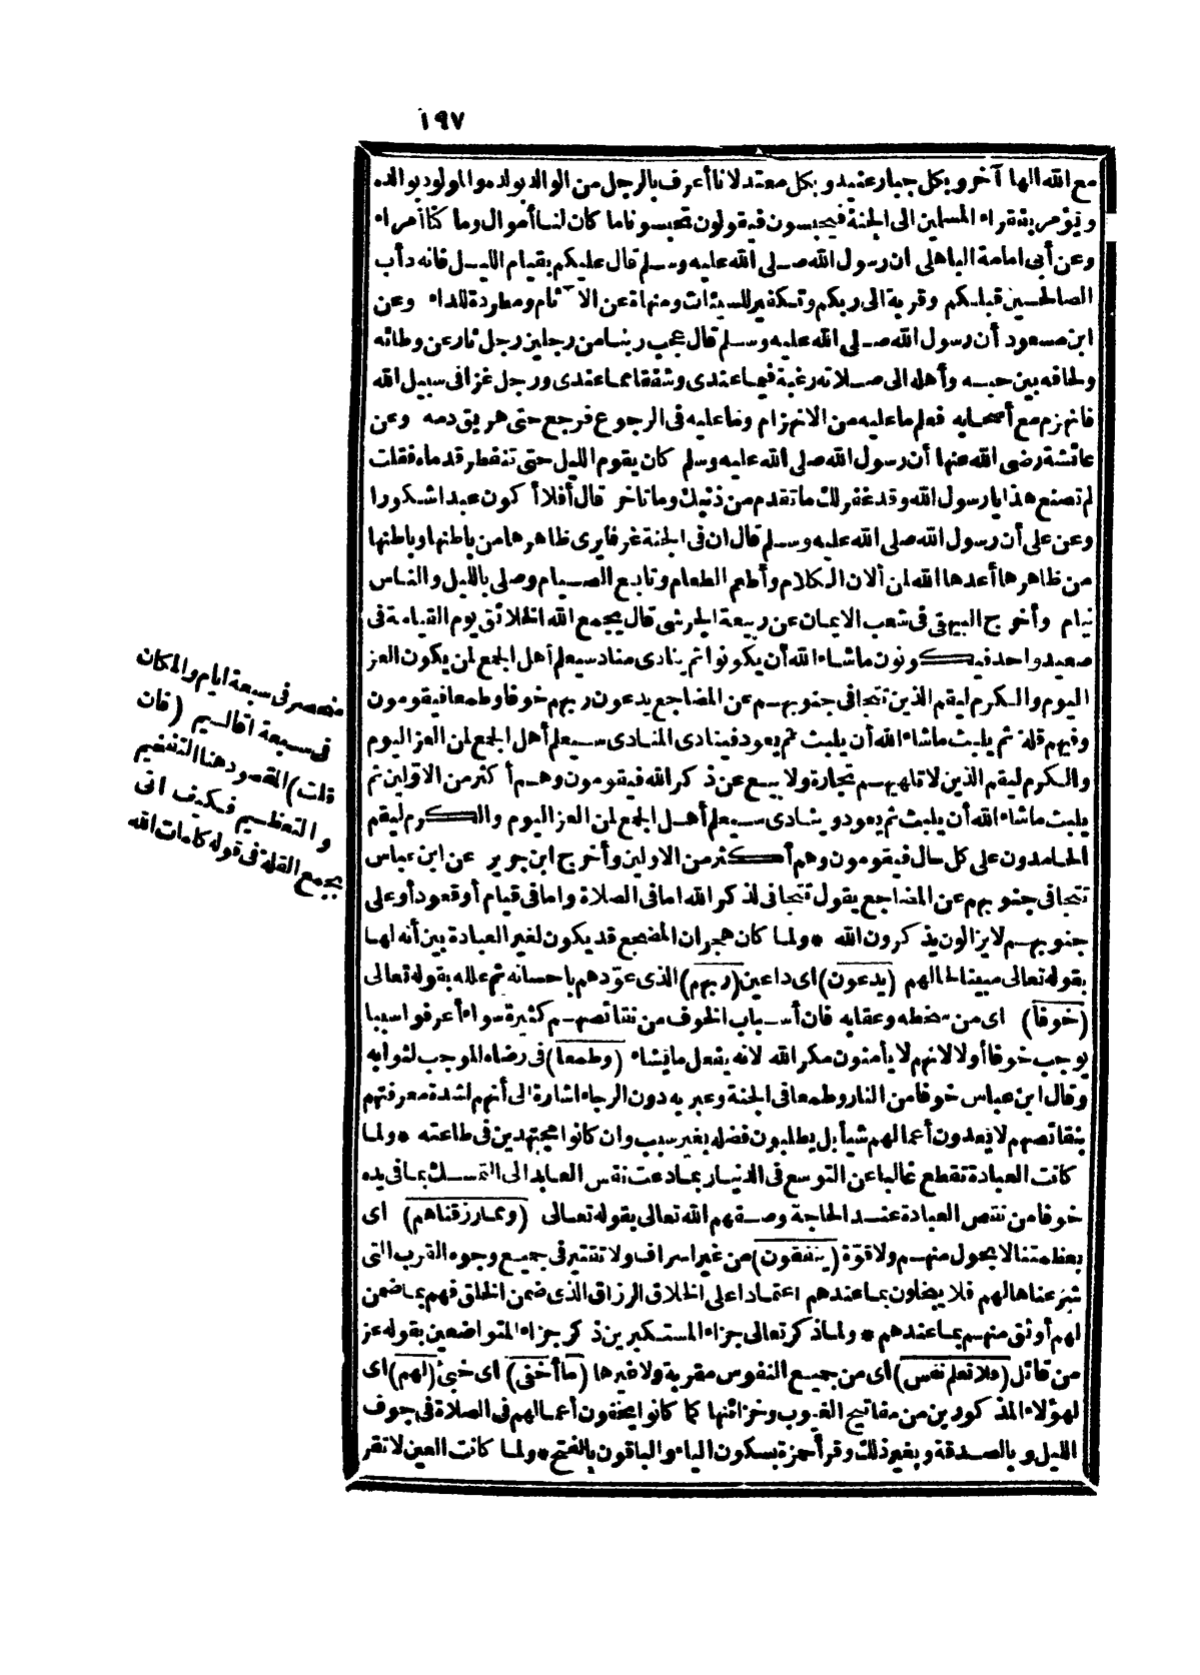 ١٩٧
مع الله الها آخر وبكل جبار عنيد و بكل معتد لانا أعرف بالرجل من الوالد بولده والمولود بوالده
ويؤمر بفقراء المسلمين الى الجنة فيحبسون فيقولون تحبسوناما كان لنا أموال وما كنا أمراء
وعن أبى امامة الباهلى ان رسول الله صلى الله عليه وسلم قال عليكم بقيام الليل فانه دأب
الصالحين قبلكم وقربة الى ربكم وتكفير للسيئات ومنهاة عن الآثام ومطردة للداء وعن
ابن مسعود أن رسول الله صلى الله عليه وسلم قال عجب ربنا من رجلين رجل ثار عن وطائه
ولحافه بين حبه وأهله الى صلاته رغبة فيما عندى وشفقا مما عندى ورجل غزا فى سبيل الله
فانهزم مع أصحابه فعلم ما عليه من الانهزام وما عليه فى الرجوع فرجع حتى هريق دمه وعن
عائشة رضى الله عنها أن رسول الله صلى الله عليه وسلم كان يقوم الليل حتى تنفطر قدماه فقلت
لم تصنع هذا يا رسول الله وقد غفر لك ما تقدم من ذنبك وما تأخر قال أفلا أكون عبدا شكورا
وعن على أن رسول الله صلى الله عليه وسلم قال ان فى الجنة غرفا يرى ظاهرها من باطنها وباطنها
من ظاهرها أعدها الله لمن ألان الكلام وأطعم الطعام وتابع الصيام وصلى بالليل والناس
نيام وأخرج البيهقى فى شعب الايمان عن ربيعة الجرشى قال يجمع الله الخلائق يوم القيامة فى
صعيد واحد فيكونون ما شاء الله أن يكونوا ثم ينادى مناد سيعلم أهل الجمع لمن يكون العز
اليوم والكرم ليقم الذين تتجافى جنوبهم عن المضاجع يدعون ربهم خوفا وطمعا فيقومون
وفيهم قلة ثم يلبث ما شاء الله أن يلبث ثم يعود فينادى المنادى سيعلم أهل الجمع لمن العز اليوم
والكرم ليقم الذين لا تلهيهم تجارة ولا بيع عن ذكر الله فيقومون وهم أكثر من الاولين ثم
يلبث ما شاء الله أن يلبث ثم يعود وينادى سيعلم أهل الجمع لمن العز اليوم والكرم ليقم
الحامدون على كل حال فيقومون وهم أكثر من الاولين وأخرج ابن جرير عن ابن عباس
تتجافى جنوبهم عن المضاجع يقول تتجافى لذكر الله اما فى الصلاة واما فى قيام أو قعود أو على
جنوبهم لا يزالون يذكرون الله * ولما كان هجران المضجع قد يكون لغير العبادة بين أنه لها
بقوله تعالى مبينا لحالهم (يدعون) اى داعين (ربهم) الذى عودهم باحسانه ثم علله بقوله تعالى
(خوفا) اى من سخطه وعقابه فان أسباب الخوف من نقائصهم كثيرة سواء أعرفوا سببا
يوجب خوفا أو لا لانهم لا يأمنون مكر الله لانه يفعل ما يشاء (وطمعا) فى رضاه الموجب لثوابه
وقال ابن عباس خوفا من النار وطمعا فى الجنة وعبر به دون الرجاء اشارة الى أنهم لشدة معرفتهم
بنقائصهم لا يعدون أعمالهم شيأ بل يطلبون فضله بغير سبب وان كانوا مجتهدين فى طاعته * ولما
كانت العبادة تقطع غالبا عن التوسع فى الدنيا ربما دعت نفس العابد الى التمسك بما فى يده
خوفا من نقص العبادة عند الحاجة وصفهم الله تعالى بقوله تعالى (ومما رزقناهم) اى
بعظمتنا لا بحول منهم ولا قوّة (ينفقون) من غير اسراف ولا تقتير فى جميع وجوه القرب التى
شرعناها لهم فلا يبخلون بما عندهم اعتمادا على الخلاق الرزاق الذى ضمن الخلق فهم بما ضمن
لهم أوثق منهم بما عندهم * ولما ذكر تعالى جزاء المستكبرين ذكر جزاء المتواضعين بقوله عز
من قائل (فلا تعلم نفس) اى من جميع النفوس مقربة ولا غيرها (ما أخفى) اى خبئ (لهم) اى
لهؤلاء المذكورين من مفاتيح الغيوب وخزائنها كما كانوا يخفون أعمالهم فى الصلاة فى جوف
الليل و بالصدقة و بغير ذلك وقرأ حمزة بسكون الياء والباقون بالفتح * ولما كانت العين لا تقر
منحصر فى سبعة ايام والمكان
فى سبعة اقاليم (فان
قلت) المقصود هنا التفخيم
والتعظيم فكيف اتى
بجمع القلة فى قوله كلمات الله